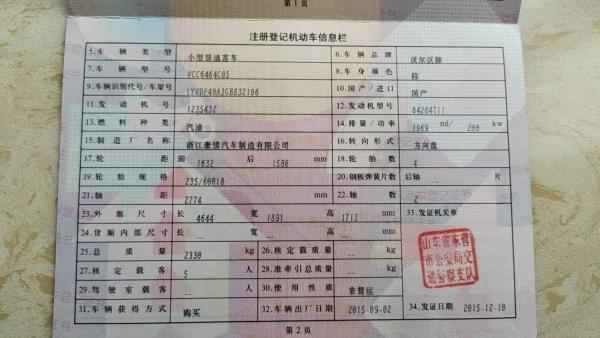 第1页
注册登记机动车信息栏
5.车辆类型 小型普通客车 6.车辆品牌 沃尔沃牌
7.车辆型号 VCC6464C05 8.车身颜色 棕
9.车辆识别代号/车架号 LYVDF40A3GB832106 10.国产/进口 国产
11.发动机号 1235432 12.发动机型号 B4204T11
13.燃料种类 汽油 14.排量/功率 1969 ml/ 200 kw
15.制造厂名称 浙江豪情汽车制造有限公司 16.转向形式 方向盘
17.轮距 前 1632 后 1586 mm 18.轮胎数 4
19.轮胎规格 235/60R18 20.钢板弹簧片数 后轴 -- 片
21.轴距 2774 mm 22.轴数 2
23.外廓尺寸 长 4644 宽 1891 高 1713 mm 33.发证机关章
24.货厢内部尺寸 长 -- 宽 -- 高 -- mm
25.总质量 2330 kg 26.核定载质量 -- kg
27.核定载客 5 人 28.准牵引总质量 -- kg
29.驾驶室载客 -- 人 30.使用性质 非营运
31.车辆获得方式 购买 32.车辆出厂日期 2015-09-02 34.发证日期 2015-12-10
山东省东营
市公安局交
通警察支队
第2页